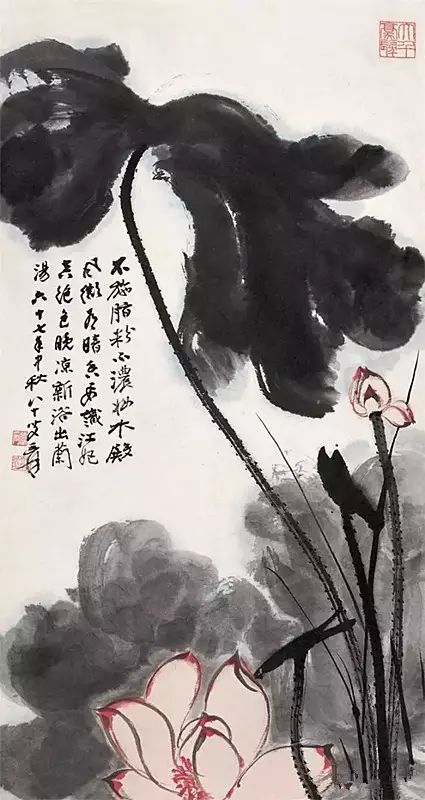 大千豪髮
不施脂粉不濃妝水殿
風微有暗香要識江妃
真絕色晚涼新浴出蘭
湯六十七年中秋八十叟爰